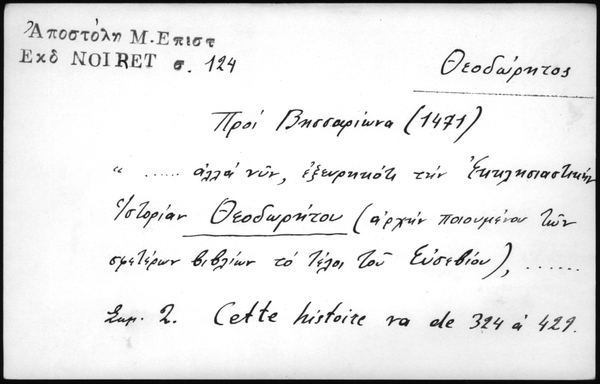 Ἀποστόλη Μ. Επιστ
Εκδ NOIRET σ. 124
Θεοδώρητος
Πρός Βησσαρίωνα (1471)
“ ...... ἀλλά νῦν, ἐξευρηκότι τήν Ἐκκλησιαστικήν
Ἱστορίαν Θεοδωρήτου (ἀρχήν ποιουμένου τῶν
σφετέρων βιβλίων τό τέλος τοῦ Εὐσεβίου), ......
Σημ. 2. Cette histoire va de 324 à 429.